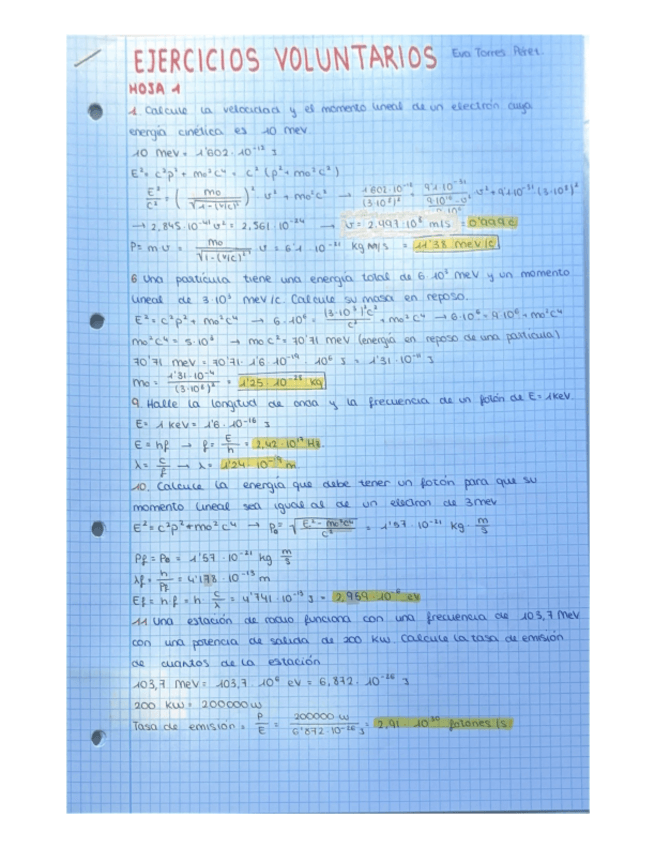 EJERCICIOS VOLUNTARIOS Eva Torres Pérez.
HOJA 1
1. Calcule la velocidad y el momento lineal de un electrón cuya
energía cinética es 10 MeV.
10 MeV = 1'602 · 10⁻¹² J
E² = c²p² + mo²c⁴ = c² (p² + mo²c²)
E²/c² = (mo/√1-(v/c)²)² · v² + mo²c² →
→ 2,845 · 10⁻⁴¹ v² = 2,561 · 10⁻²⁴ → v = 2,997 · 10⁸ m/s = 0'999c
P = m v = mo/√1-(v/c)² v = 6'1 · 10⁻²¹ kg m/s = 11'38 MeV/c
6 Una partícula tiene una energía total de 6 · 10³ MeV y un momento
lineal de 3 · 10³ MeV/c. Calcule su masa en reposo.
E² = c²p² + mo²c⁴ → 6 · 10⁶ = (3·10³)²c²/c² + mo²c⁴ → 6·10⁶ = 9·10⁶ + mo²c⁴
mo²c⁴ = 5·10³ → mo c² = 70'71 MeV (energía en reposo de una partícula)
70'71 MeV = 70'71 · 1'6 · 10⁻¹⁹ · 10⁶ J = 1'31 · 10⁻¹¹ J
mo = 1'31·10⁻⁴/(3·10⁸)² = 1'25 · 10⁻²⁸ kg
9. Halle la longitud de onda y la frecuencia de un fotón de E = 1 keV.
E = 1 keV = 1'6 · 10⁻¹⁶ J
E = hf → f = E/h = 2,42 · 10¹⁷ Hz.
λ = c/f → λ = 1'24 · 10⁻⁹ m
10. Calcule la energía que debe tener un fotón para que su
momento lineal sea igual al de un electrón de 3 MeV
E² = c²p² + mo²c⁴ → Pe = √E² - mo²c⁴/c² = 1'57 · 10⁻²¹ kg · m/s
Pf = Pe = 1'57 · 10⁻²¹ kg m/s
λf = h/Pf = 4'178 · 10⁻¹³ m
Ef = h f = h · c/λ = 4'741 · 10⁻¹³ J = 2,959 · 10⁻⁶ eV
11 Una estación de radio funciona con una frecuencia de 103,7 MeV
con una potencia de salida de 200 kW. Calcule la tasa de emisión
de cuantos de la estación
103,7 MeV = 103,7 · 10⁶ eV = 6,872 · 10⁻²⁶ J
200 kW = 200000 W
Tasa de emisión = P/E = 200000 W/6'872·10⁻²⁶ J = 2,91 · 10³⁰ fotones/s